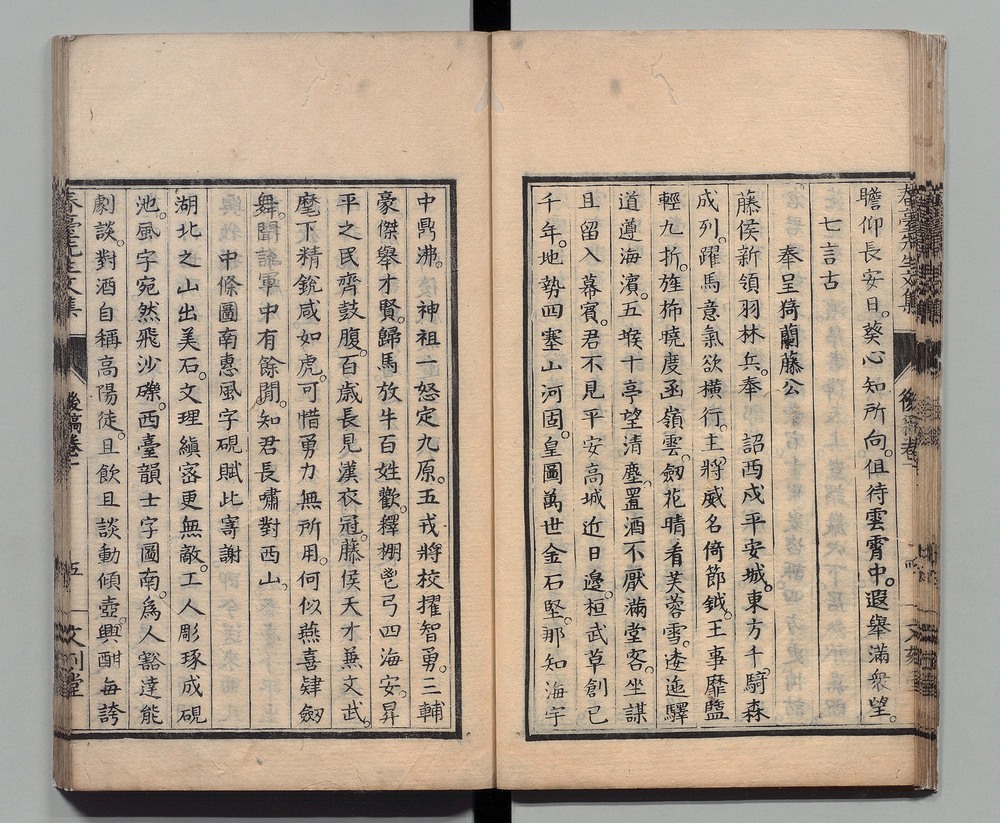 瞻仰長安日。葵心知所向。但待雲霄中。遐舉滿衆望。
七言古
奉呈猗蘭藤公
藤侯新領羽林兵。奉　詔西戍平安城。東方千騎森
成列。躍馬意氣欲橫行。主將威名倚節鉞。王事靡盬
輕九折。旌旆曉度函嶺雲。劒花晴看芙蓉雪。逶迤驛
道遵海濱。五堠十亭望清塵。置酒不厭滿堂客。坐謀
且留入幕賓。君不見平安高城近日邊。桓武草創已
千年。地勢四塞山河固。皇圖萬世金石堅。那知海宇
中鼎沸。神祖一怒定九原。五戎將校擢智勇。三輔
豪傑舉才賢。歸馬放牛百姓歡。釋掤鬯弓四海安。昇
平之民齊鼓腹。百歲長見漢衣冠。藤侯天才兼文武。
麾下精銳咸如虎。可惜勇力無所用。何似燕喜肄劒
舞。聞諳軍中有餘閒。知君長嘯對西山。
中條圖南惠風字硯賦此寄謝
湖北之山出美石。文理縝密更無敵。工人彫琢成硯
池。風字宛然飛沙礫。西臺韻士字圖南。爲人豁達能
劇談。對酒自稱高陽徒。且飲且談動傾壺。興酣每誇
春臺先生文集
後稿卷一
五